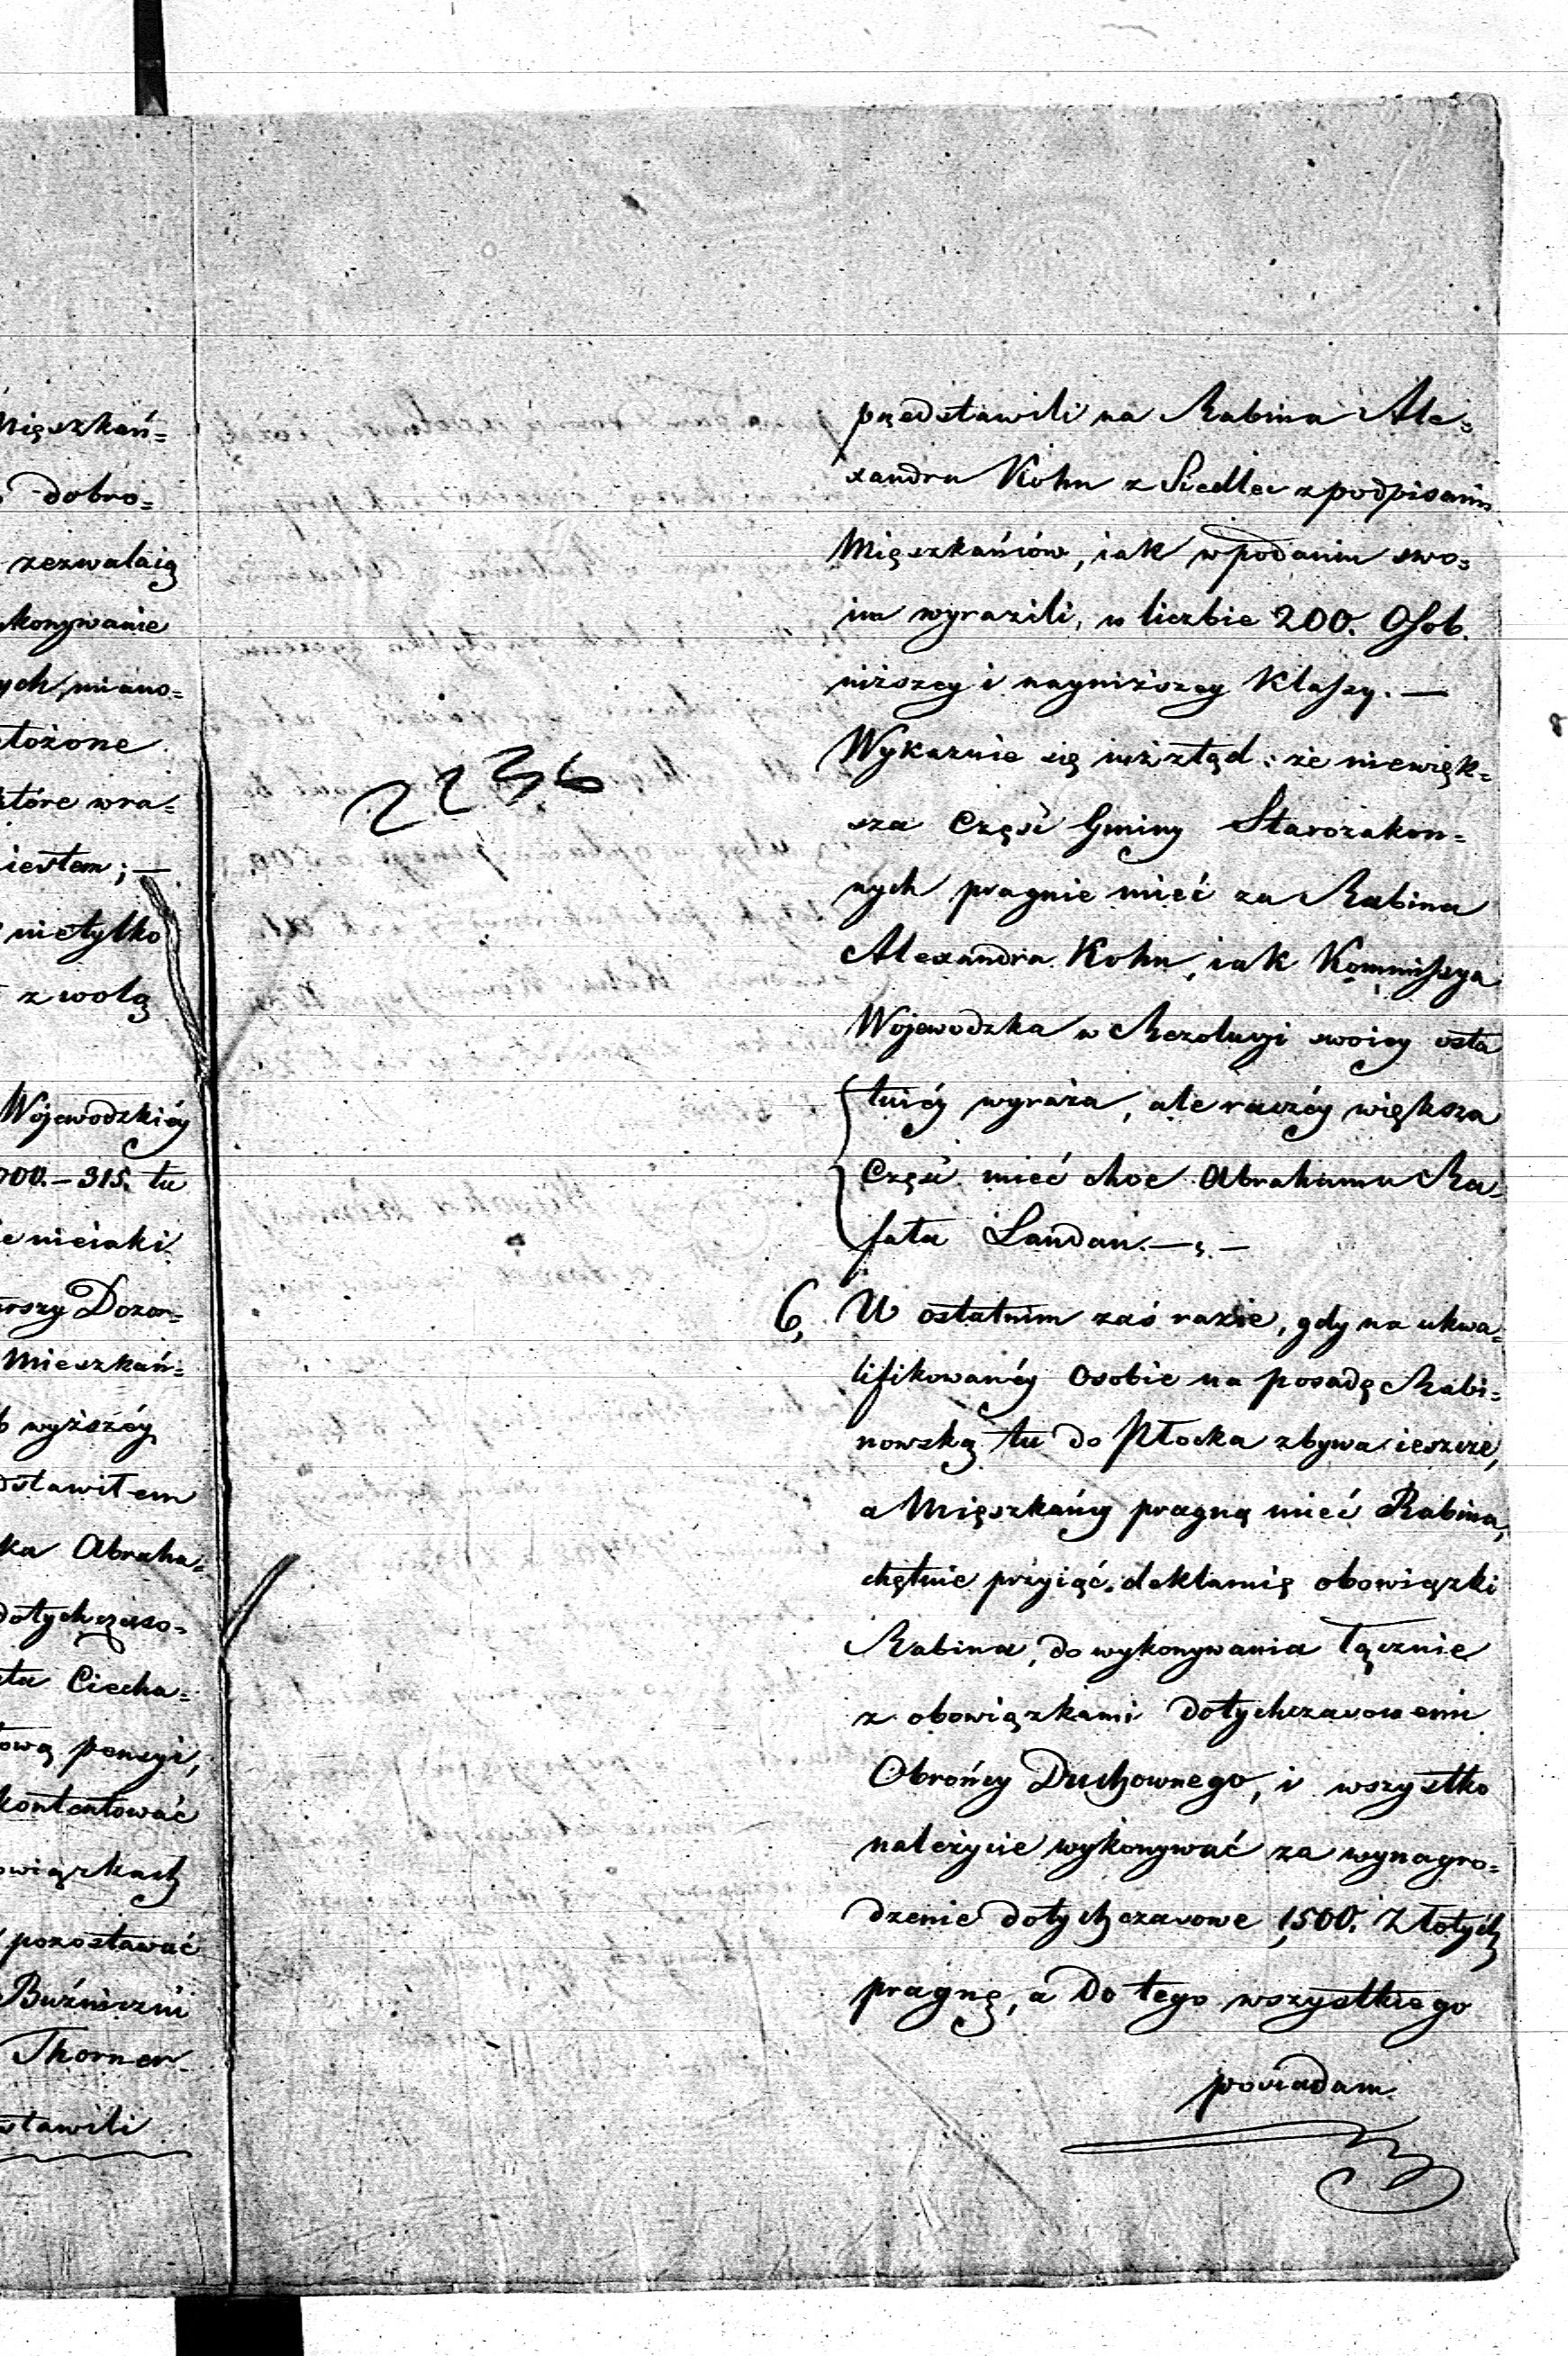 Mięszkań=
dobro=
zezwalaią
konywanie
ych, miano=
łożone
które wra=
iestem; —
nietylko
z wolą
Wojewodzkiéy
000. — 315. tu
e nieiaki
rszy Dozor=
Mieszkań=
b wyższéy
dstawiłem
ka Abraha=
dotychczaso=
tu Ciecha=
ową pensyi,
kontentować
owiązkach
pozostawać
Buźniczni
Thorner
stawili
2236
przedstawili na Rabina Ale=
xandra Kohn z Siedlec z podpisami
Mięszkańców, iak w podaniu swo=
im wyrazili, w liczbie 200. Osob.
niższey i nayniższey Klassy. —
Wykazuie się iuż ztąd: że niewięk=
sza Część Gminy Starozakon=
nych pragnie mieć za Rabina
Alexandra Kohn, iak Kommissya
Wojewodzka w Rezolucyi swoiey osta
tniéy wyraża, ale raczéy większa
Część mieć chce Abrahama Ra=
fała Landau. — —
6, W ostatnim zaś razie, gdy na ukwa=
lifikowanéy Osobie na posadę Rabi=
nowską tu do Płocka zbywa ieszcze,
a Mięszkańcy pragną mieć Rabina,
chętnie przyiąć deklaruię obowiązki
Rabina, do wykonywania łącznie
z obowiązkami dotychczasowemi
Obrońcy Duchownego, i wszystko
należycie wykonywać za wynagro=
dzenie dotychczasowe 1,500. Złotych
pragnę, a do tego wszystkiego
posiadam